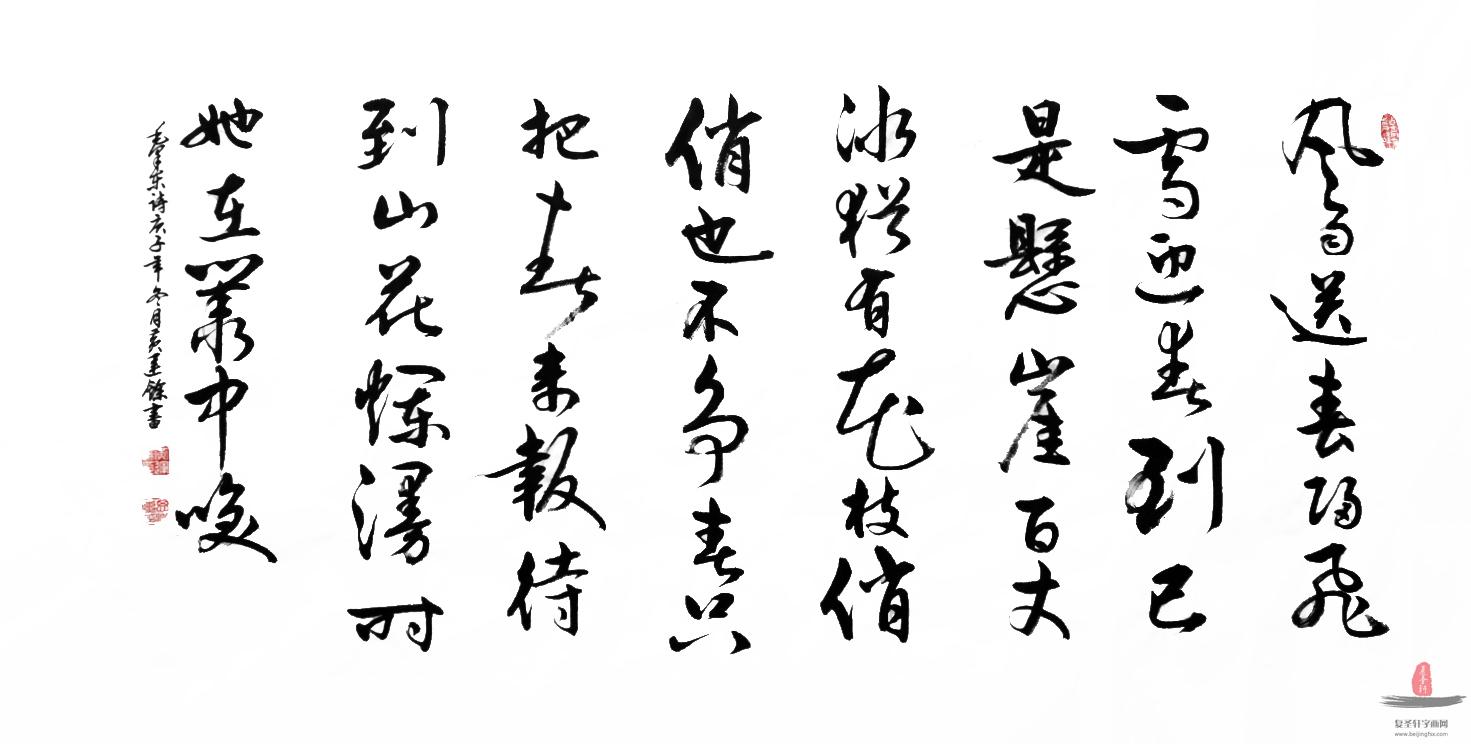 風雨送春歸飛
雪迎春到已
是懸崖百丈
冰猶有花枝俏
俏也不争春只
把春来報待
到山花爛漫时
她在叢中咲
毛澤东诗庚子年冬月黄餘書
复圣轩字画网
www.beijingfsx.com